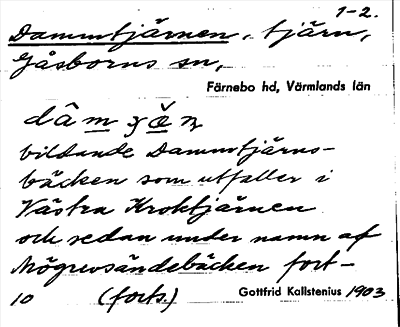 1-2.
Dammtjärnen, tjärn,
Gåsborns sn,
Färnebo hd, Värmlands län
bildande Dammtjärns-
bäcken som utfaller i
Västra Kroktjärnen
och sedan under namn af
Mögrevsändebäcken fort-
10 (forts.) Gottfrid Kallstenius 1903